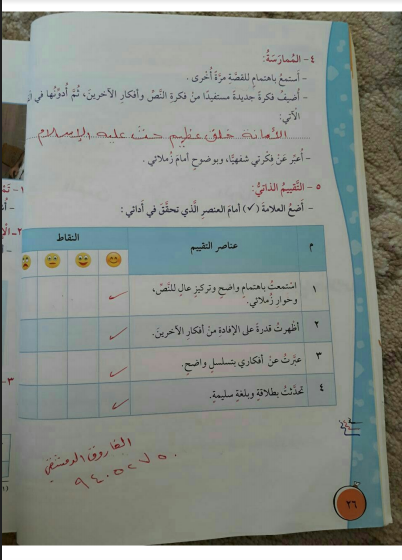 ٤- الـمُمارَسَةُ:
- أَستمعُ باهتمامٍ للقصّةِ مرّةً أُخرى .
- أُضيفُ فكرةً جديدةً مستفيدًا منْ فكرةِ النَّصِّ وأفكارِ الآخرينَ، ثُمَّ أُدوِّنُها في
الآتي:
الأمانة خلق عظيم حث عليه الإسلام
- أُعبّر عَنْ فكرتي شفهيًّا، وبوضوحٍ أمامَ زُملائي .
٥- التَّقييمُ الذاتيُّ:
- أَضعُ العلامةَ (✓) أمامَ العنصرِ الَّذي تحقَّقَ في أدائي :
م عناصر التقييم النقاط
١ استمعتُ باهتمامٍ واضحٍ وتركيزٍ عالٍ للنَّصِّ، وحوارِ زُملائي. ✓
٢ أظهرتُ قدرةً على الإفادةِ منْ أفكارِ الآخرينَ. ✓
٣ عبّرتُ عنْ أفكاري بتسلسلٍ واضحٍ. ✓
٤ تحدّثتُ بطلاقةٍ وبلغةٍ سليمةٍ. ✓
الفاروق الدمشقي
٩٤٠٥٢٧٥٠
٢٦